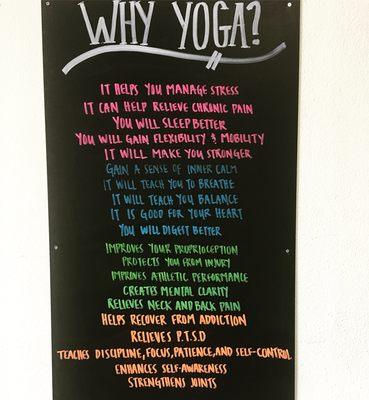 WHY YOGA?
IT HELPS YOU MANAGE STRESS
IT CAN HELP RELIEVE CHRONIC PAIN
YOU WILL SLEEP BETTER
YOU WILL GAIN FLEXIBILITY & MOBILITY
IT WILL MAKE YOU STRONGER
GAIN A SENSE OF INNER CALM
IT WILL TEACH YOU TO BREATHE
IT WILL TEACH YOU BALANCE
IT IS GOOD FOR YOUR HEART
YOU WILL DIGEST BETTER
IMPROVES YOUR PROPRIOCEPTION
PROTECTS YOU FROM INJURY
IMPROVES ATHLETIC PERFORMANCE
CREATES MENTAL CLARITY
RELIEVES NECK AND BACK PAIN
HELPS RECOVER FROM ADDICTION
RELIEVES P.T.S.D
TEACHES DISCIPLINE, FOCUS, PATIENCE, AND SELF-CONTROL
ENHANCES SELF-AWARENESS
STRENGTHENS JOINTS